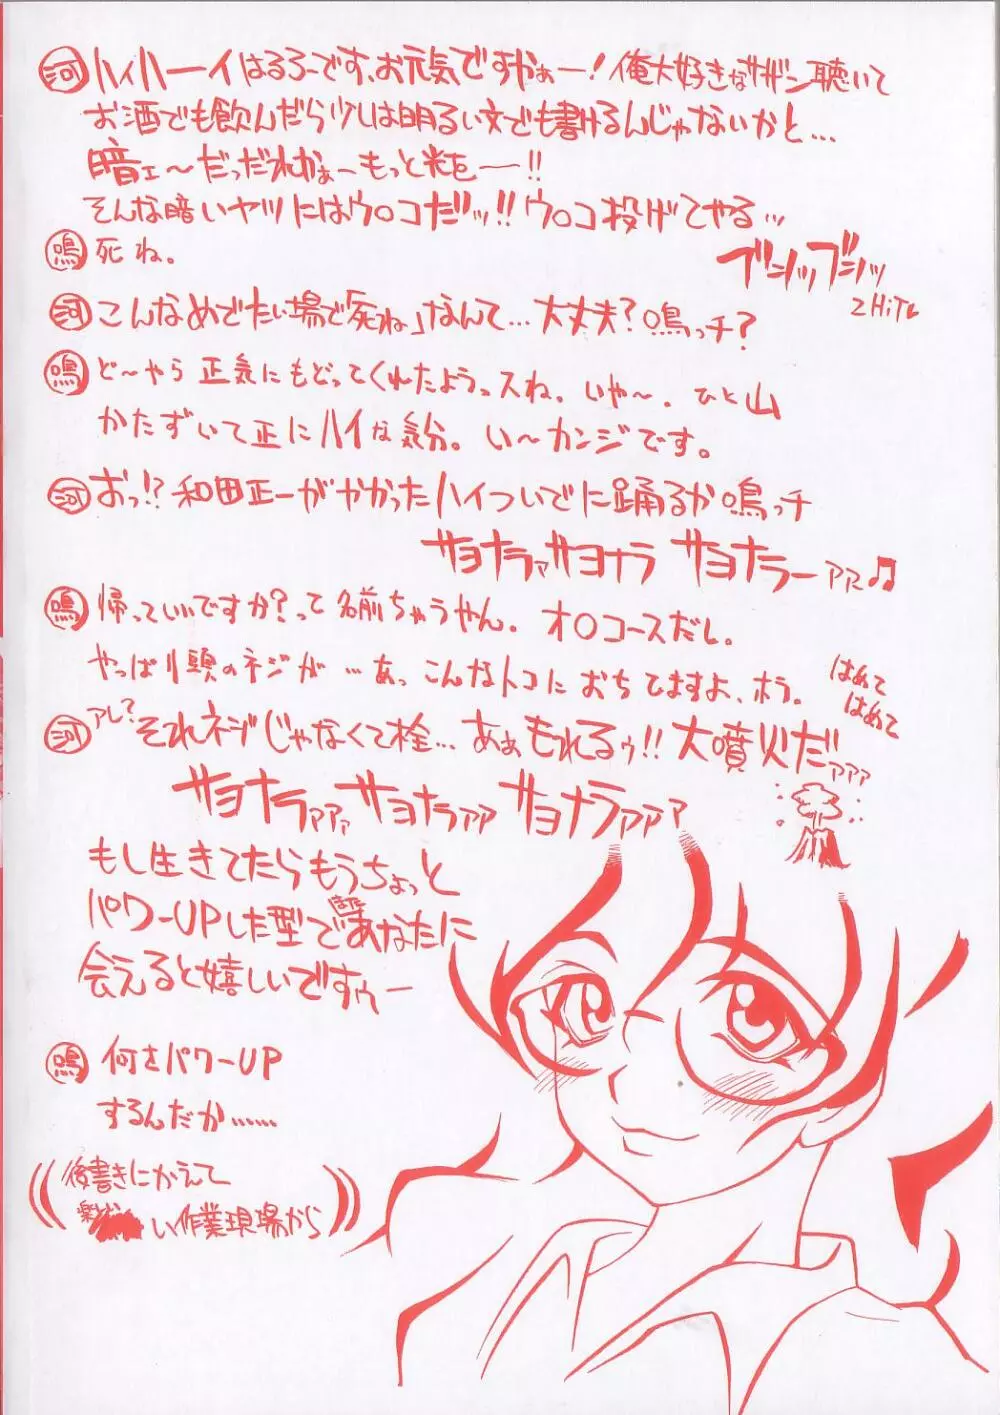 河 ハイハーイはるろーです、お元気ですかぁー!俺大好きなサザン聴いて
お酒でも飲んだら少しは明るい文でも書けるんじゃないかと…
暗ェ〜だっだれかぁーもっと光をー!!
そんな暗いヤツにはウ○コだッ!!ウ○コ投げてやるッ
ブンッブンッ
2HiT
鳴 死ね。
河 こんなめでたい場で「死ね」なんて…大丈夫?鳴っチ?
鳴 ど〜やら正気にもどってくれたようっスね。いや〜。ひと山
かたずいて正にハイな気分。い〜カンジです。
河 おっ!?和田正一がやかったハイついでに踊るか鳴っチ
サヨナラァサヨナラ サヨナラーアア♫
鳴 帰っていいですか?って名前ちゃうやん。オ○コースだし。
やっぱり頭のネジが…あっこんなトコにおちてますよ、ホラ。
はめて
はめて
河 アレ?それネジじゃなくて栓…あぁもれるぅ!!大噴火だァァァ
サヨナラァァァサヨナラァァサヨナラァァァ
もし生きてたらもうちょっと
パワーUPした型であなたに
会えると嬉しいですぅー
鳴 何さパワーUP
するんだか……
後書きにかえて
楽し い作業現場から